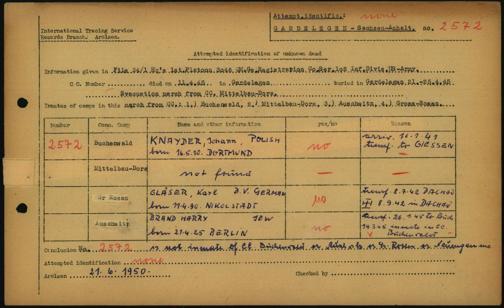 International Tracing Service
Records Branch, Arolsen.
Attempt.identific.: none
GARDELEGEN - Sachsen-Anhalt. no. 2572
Attempted identification of unknown dead
Information given in
C.C. Number died on 11.4.45 in Gardelegen buried in Gardelegen 21.-25.4.45
Evacuation march from CC. Mittelbau-Dora.
Inmates of camps in this march from CC: 1.) Buchenwald, 2.) Mittelbau-Dora, 3.) Auschwitz, 4.) Gross-Rosen.
Number Conc. Camp Name and other information yes/no Reason
2572 Buchenwald KNAYDER, Johann, POLISH
born 16.5.10. DORTMUND no
transf. to GIESSEN
Mittelbau-Dora not found — —
Gr Rosen GLÄSER, Karl B.V. GERMAN
born 11.4.90. NIKOLSTADT no transf 8.7.42 DACHAU
8.9.42 in DACHAU
Auschwitz BRAND HARRY JEW
born 21.4.25 BERLIN no
Buchenwald
Conclusion No. 2572 is not inmate of CC Buchenwald
Attempted identification none
Arolsen 21.6.1950. Checked by